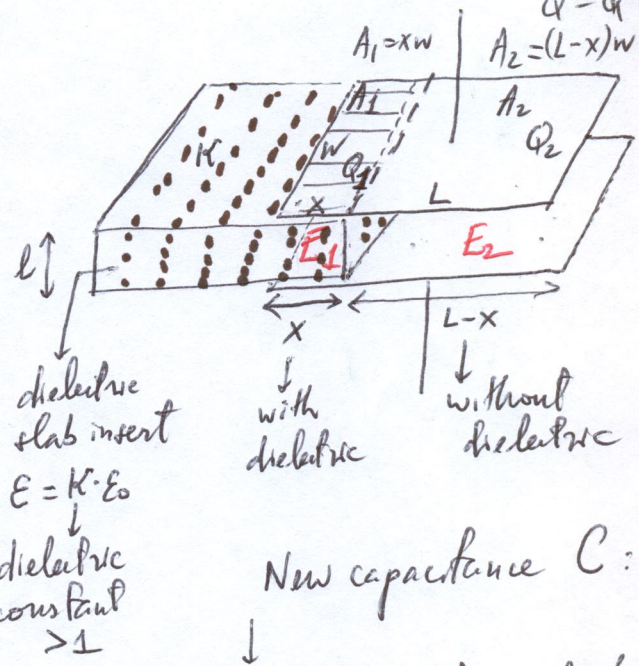 A₁=xw
A₂=(L-x)w
A₁
A₂
K
w
Q₁
Q₂
x
L
E₁
E₂
l
x
L-x
dielectric
slab insert
ε = K·ε₀
dielectric
constant
>1
with
dielectric
without
dielectric
New capacitance C: